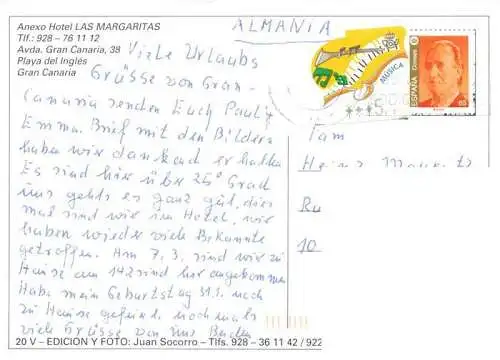 Anexo Hotel LAS MARGARITAS
Tlf.: 928 – 76 11 12
Avda. Gran Canaria, 38
Playa del Inglés
Gran Canaria
ALMANIA
Viele Urlaubs
Grüsse von Gran
Canaria senden Euch Paul &
Emma. Brief mit den Bildern
haben wir dankend erhalten
Es sind hier über 25° Grad
uns gehts es ganz gut, dies
mal sind wir im Hotel, wir
haben wieder viele Bekannte
getroffen. Am 7. 3. sind wir zu
Hause am 14.2 sind hier angekommen
Habe mein Geburtstag 31.1. noch
zu Hause gefeiert. nochmals
viele Grüsse von uns Beiden
MÚSICA
ESPAÑA
Correos
Fam
Heinz
Ru
10
20 V – EDICION Y FOTO: Juan Socorro – Tlfs. 928 – 36 11 42 / 922